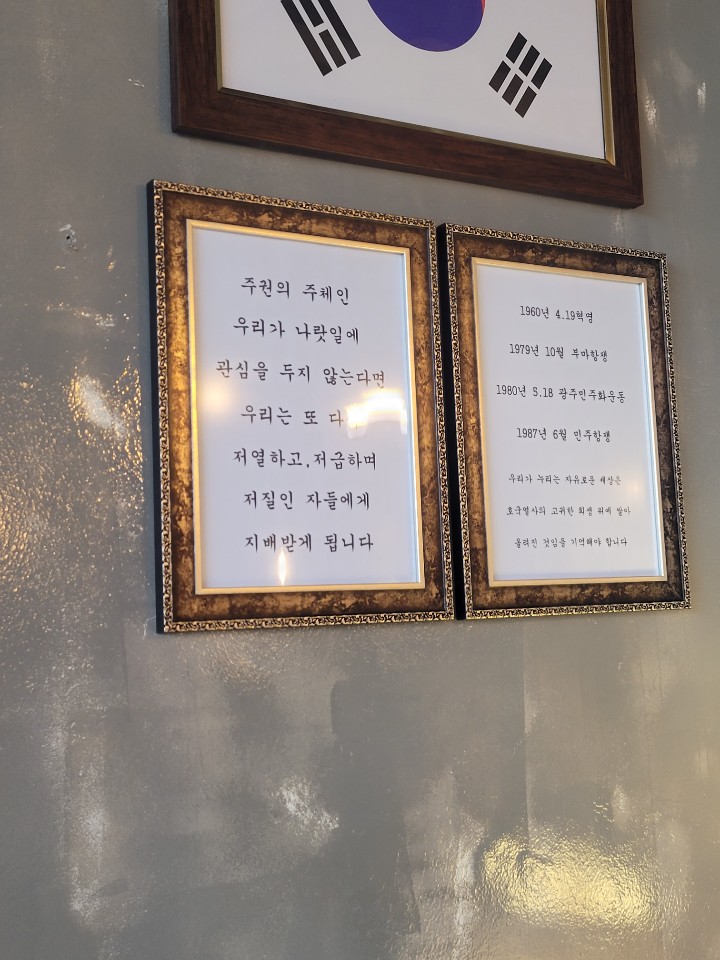 주권의 주체인
우리가 나랏일에
관심을 두지 않는다면
우리는 또
저열하고,저급하며
저질인 자들에게
지배받게 됩니다
1960년 4.19혁명
1979년 10월 부마항쟁
1980년 5.18 광주민주화운동
1987년 6월 민주항쟁
우리가 누리는 자유로운 세상은
호국열사의 고귀한 희생 위에 쌓아
올려진 것임을 기억해야 합니다